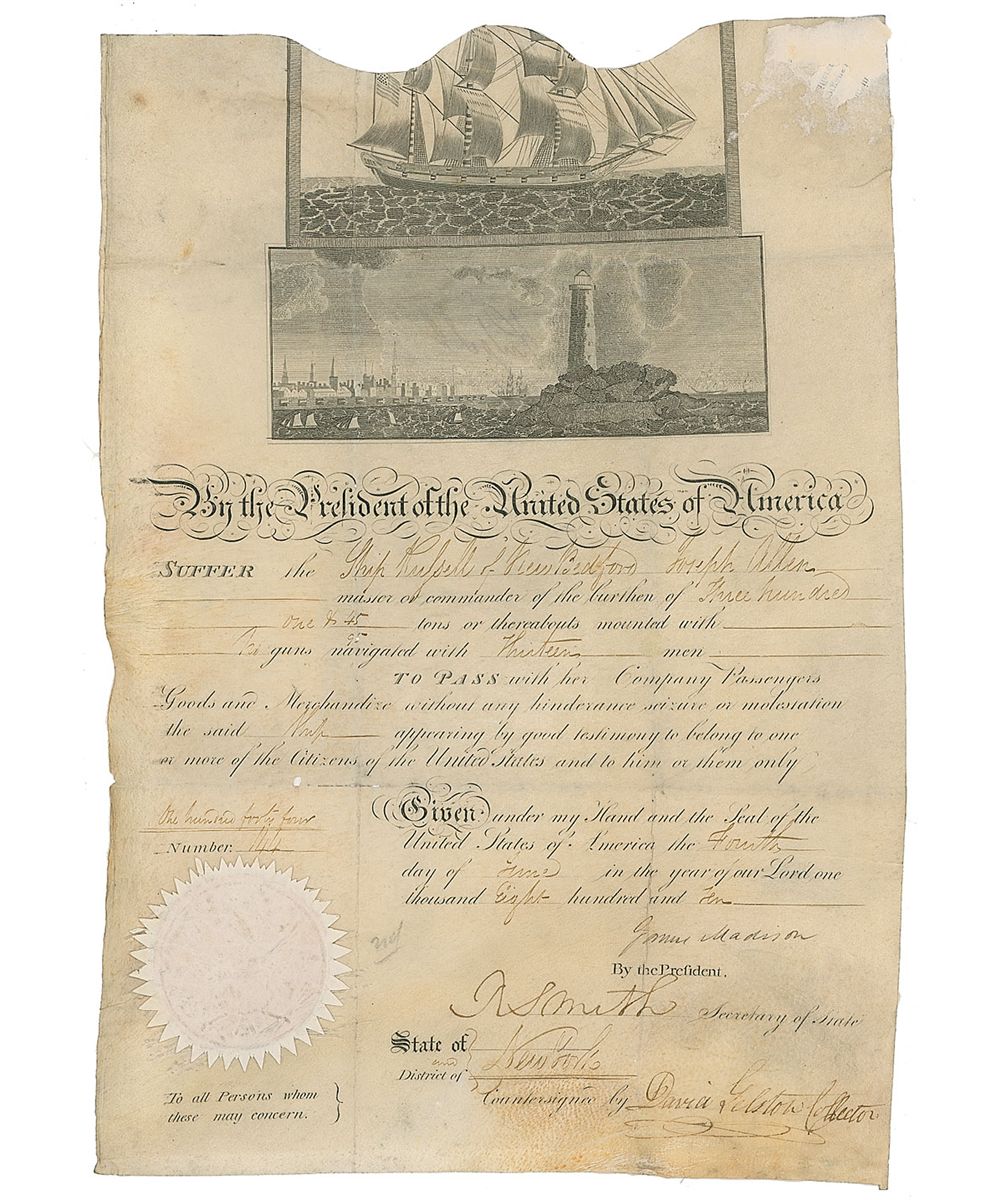 By the President of the United States of America
SUFFER the Ship Russell of New Bedford Joseph Allen
master or commander of the burthen of Three hundred
one & 45 tons or thereabouts mounted with
95
No guns navigated with Thirteen men
TO PASS with her Company Passengers
Goods and Merchandize without any hinderance seizure or molestation
the said Ship appearing by good testimony to belong to one
or more of the Citizens of the United States and to him or them only
One hundred forty four
Number. 144
Given under my Hand and the Seal of the
United States of America the Fourth
day of June in the year of our Lord one
thousand Eight hundred and Ten
James Madison
By the President.
R Smith Secretary of State
State of
and New York
District of
Countersigned by David Gelston Collector
To all Persons whom
these may concern.